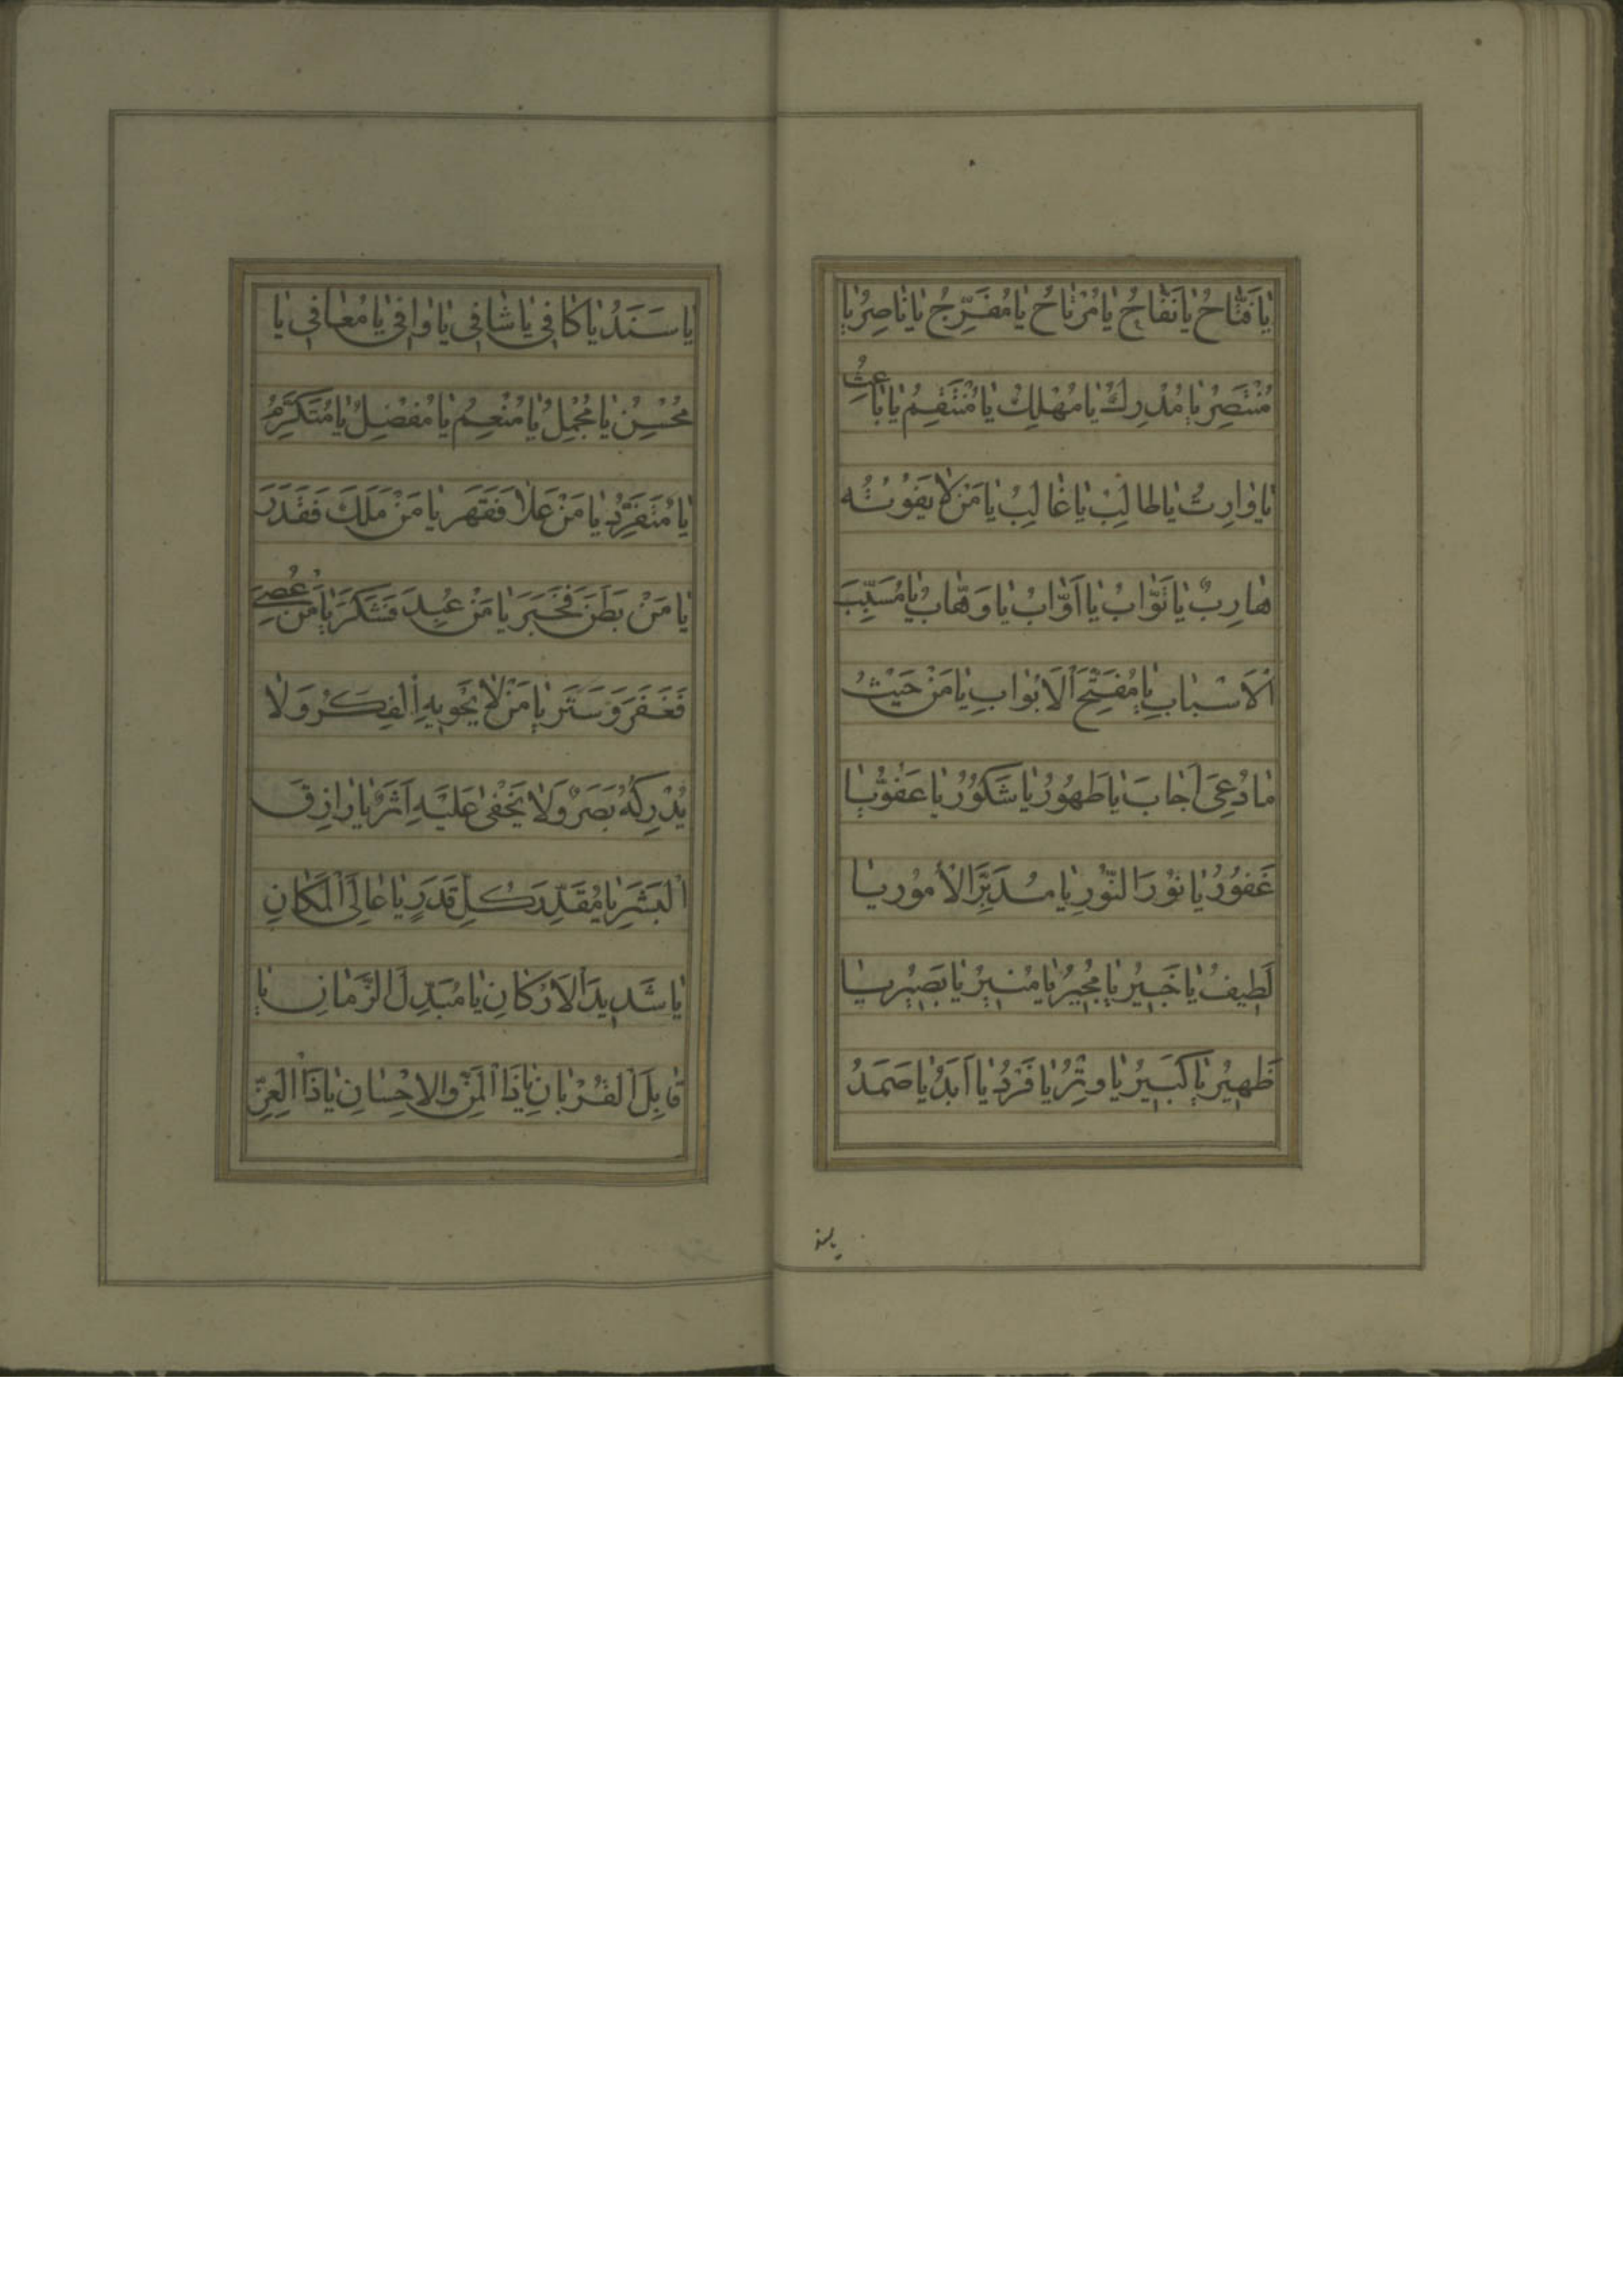 يَا فَتَّاحُ يَا نَفَّاحُ يَا مُرْتَاحُ يَا مُفَرِّجُ يَا نَاصِرُ يَا
مُنْتَصِرُ يَا مُدْرِكُ يَا مُهْلِكُ يَا مُنْتَقِمُ يَا بَاعِثُ
يَا وَارِثُ يَا طَالِبُ يَا غَالِبُ يَا مَنْ لَا يَفُوتُهُ
هَارِبٌ يَا تَوَّابُ يَا أَوَّابُ يَا وَهَّابُ يَا مُسَبِّبَ
الْاَسْبَابِ يَا مُفَتِّحَ الْاَبْوَابِ يَا مَنْ حَيْثُ
مَا دُعِيَ اَجَابَ يَا طَهُورُ يَا شَكُورُ يَا عَفُوُّ يَا
غَفُورُ يَا نُورَ النُّورِ يَا مُدَبِّرَ الْأُمُورِ يَا
لَطِيفُ يَا خَبِيرُ يَا مُجِيرُ يَا مُنِيرُ يَا بَصِيرُ يَا
ظَهِيرُ يَا كَبِيرُ يَا وِتْرُ يَا فَرْدُ يَا اَبَدُ يَا صَمَدُ
يَا سَنَدُ يَا كَافِي يَا شَافِي يَا وَافِي يَا مُعَافِي يَا
مُحْسِنُ يَا مُجْمِلُ يَا مُنْعِمُ يَا مُفْضِلُ يَا مُتَكَرِّمُ
يَا مُتَفَرِّدُ يَا مَنْ عَلَا فَقَهَرَ يَا مَنْ مَلَكَ فَقَدَرَ
يَا مَنْ بَطَنَ فَخَبَرَ يَا مَنْ عُبِدَ فَشَكَرَ يَا مَنْ عُصِيَ
فَغَفَرَ وَسَتَرَ يَا مَنْ لَا يَحْوِيهِ الْفِكَرُ وَلَا
يُدْرِكُهُ بَصَرٌ وَلَا يَخْفَى عَلَيْهِ اَثَرٌ يَا رَازِقَ
الْبَشَرِ يَا مُقَدِّرَ كُلِّ قَدَرٍ يَا عَالِيَ الْمَكَانِ
يَا شَدِيدَ الْاَرْكَانِ يَا مُبَدِّلَ الزَّمَانِ يَا
قَابِلَ الْقُرْبَانِ يَا ذَا الْمَنِّ وَالْاِحْسَانِ يَا ذَا الْعِزِّ